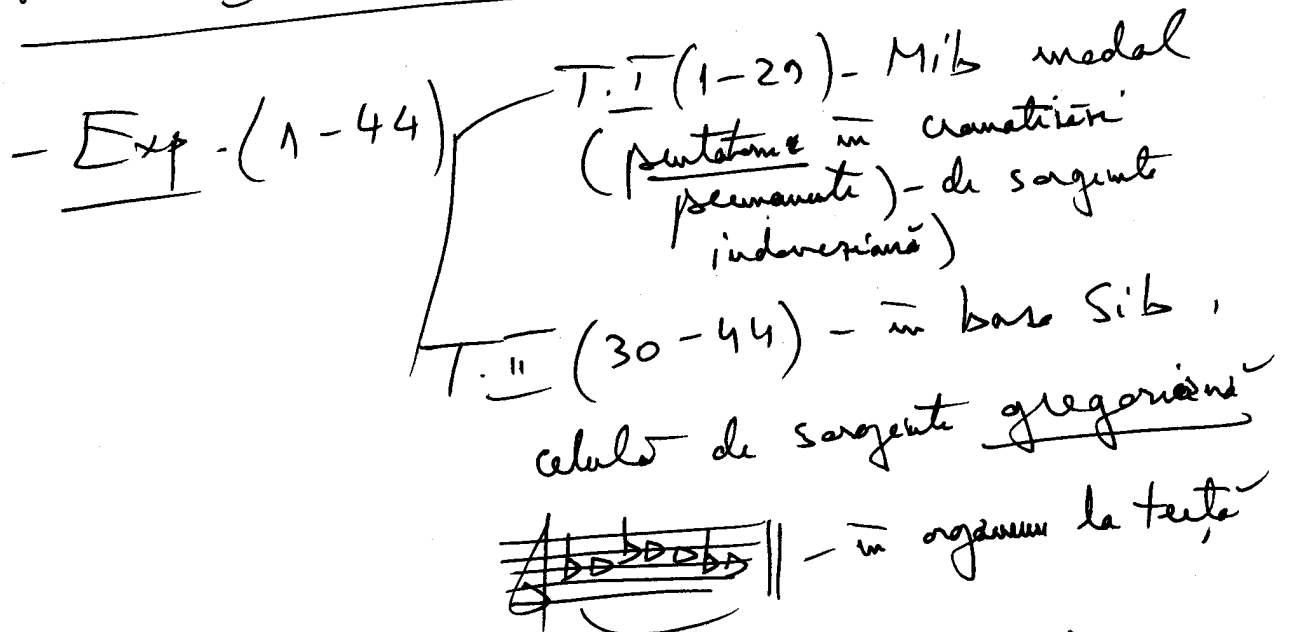 - Exp. (1-44)
T.I (1-29) - Mib modal
(pentatonie în cromatizări
permanente) - de sorginte
indoneziană)
T.II (30-44) - în baza Sib,
celulă de sorginte gregoriană
- în organum la terță